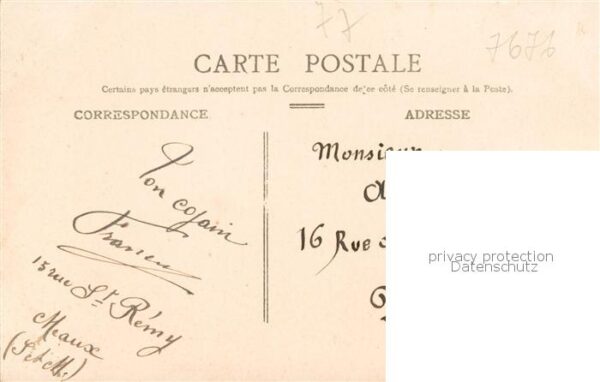 77
7676
CARTE POSTALE
Certains pays étrangers n'acceptent pas la Correspondance de ce côté (Se renseigner à la Poste).
CORRESPONDANCE
ADRESSE
Ton cousin
15 rue St Rémy
Meaux
(S et M)
Monsieur
16 Rue
privacy protection
Datenschutz